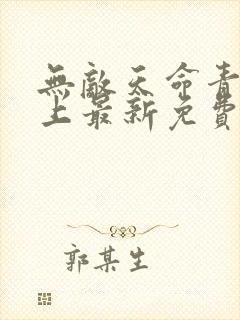 無敵天命青
上最新免費
郭某生